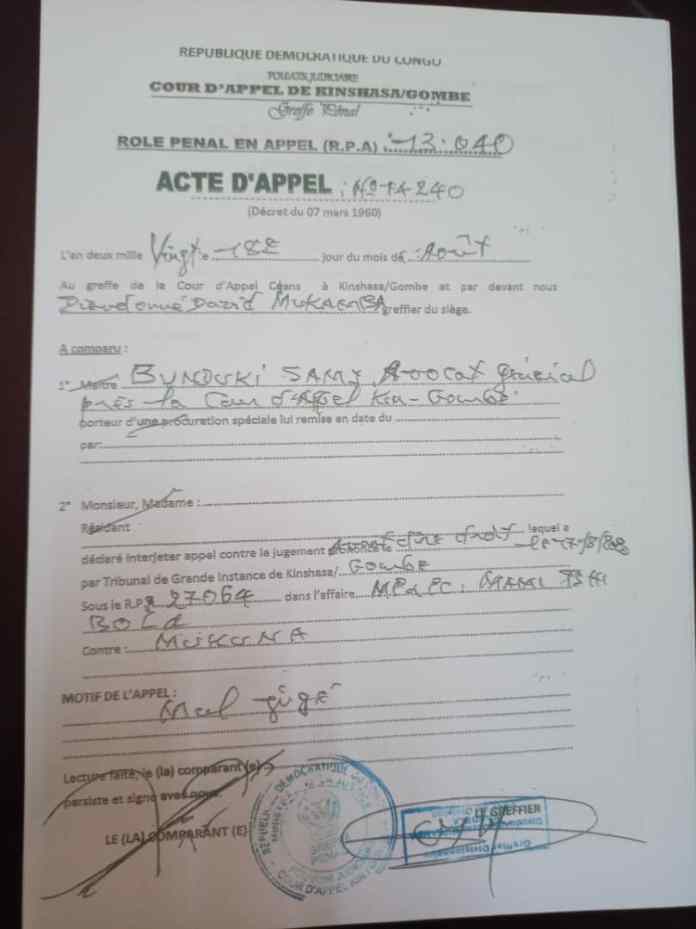 REPUBLIQUE DEMOCRATIQUE DU CONGO
POUVOIR JUDICIAIRE
COUR D'APPEL DE KINSHASA/GOMBE
Greffe Pénal
ROLE PENAL EN APPEL (R.P.A) 13.040
ACTE D'APPEL : N° 14240
(Décret du 07 mars 1960)
L'an deux mille Vingt jour du mois de Août
Au greffe de la Cour d'Appel Céans à Kinshasa/Gombe et par devant nous
Dieudonné David greffier du siège.
A comparu :
1° Maître BUNDUKI SAMY Avocat général
près la Cour d'Appel Kin-Gombe
porteur d'une procuration spéciale lui remise en date du
par:
2° Monsieur, Madame :
Résident
lequel a
déclaré interjeter appel contre le jugement
par Tribunal de Grande Instance de Kinshasa/ GOMBE
Sous le R.P 27064 dans l'affaire MP & PC : MAMI
Contre : MUKUNA
MOTIF DE L'APPEL :
Mal jugé
Lecture faite, le (la) comparant (e)
persiste et signe avec nous.
LE (LA) COMPARANT (E)
LE GREFFIER